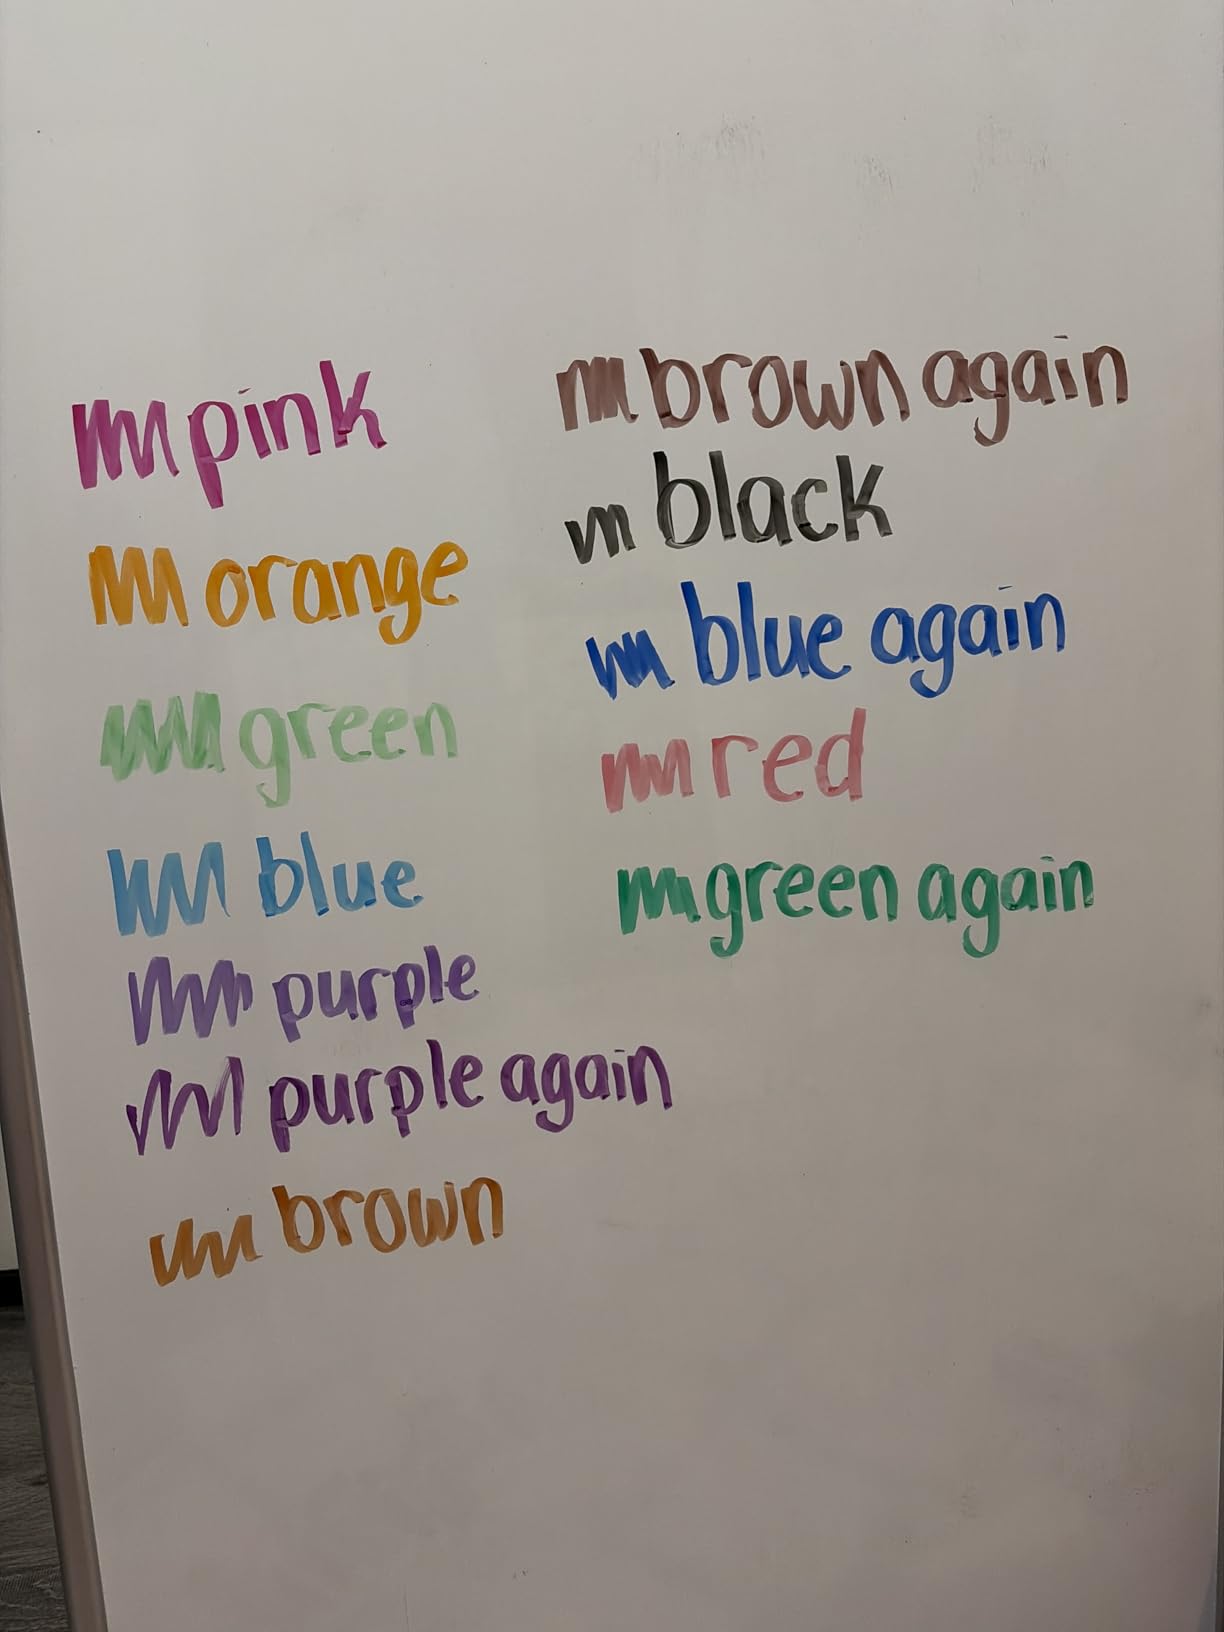 pink
orange
green
blue
purple
purple again
brown
brown again
black
blue again
red
green again